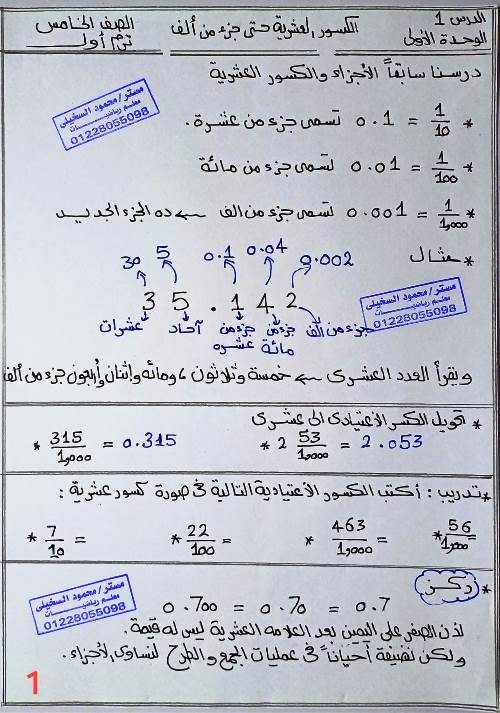 الدرس 1
الوحدة الأولى
الكسور العشرية حتى جزء من ألف
الصف الخامس
ترم أول
درسنا سابقاً الأجزاء والكسور العشرية
* 1/10 = 0.1 تسمى جزء من عشرة.
مستر/ محمود السخيلى
معلم رياضيات
01228055098
* 1/100 = 0.01 تسمى جزء من مائة
* 1/1,000 = 0.001 تسمى جزء من الف ← ده الجزء الجديد
* مثال
30 5 0.1 0.04 0.002
3 5 . 1 4 2
عشرات آحاد جزء من عشره جزء من مائة جزء من الف
مستر/ محمود السخيلى
معلم رياضيات
01228055098
ونقرأ العدد العشرى ← خمسة وثلاثون ، ومائه وإثنان وأربعون جزء من ألف
* تحويل الكسر الأعتيادى الى عشرى
* 2 53/1,000 = 2.053
* 315/1,000 = 0.315
* تدريب : أكتب الكسور الأعتيادية التالية فى صورة كسور عشرية :
* 56/1,000 =
* 463/1,000 =
* 22/100 =
* 7/10 =
* ركز
0.700 = 0.70 = 0.7
مستر/ محمود السخيلى
معلم رياضيات
01228055098
لأن الصفر على اليمين بعد العلامه العشرية ليس له قيمة.
ولكن نضيفة أحياناً فى عمليات الجمع والطرح لتساوى الأجزاء.
1